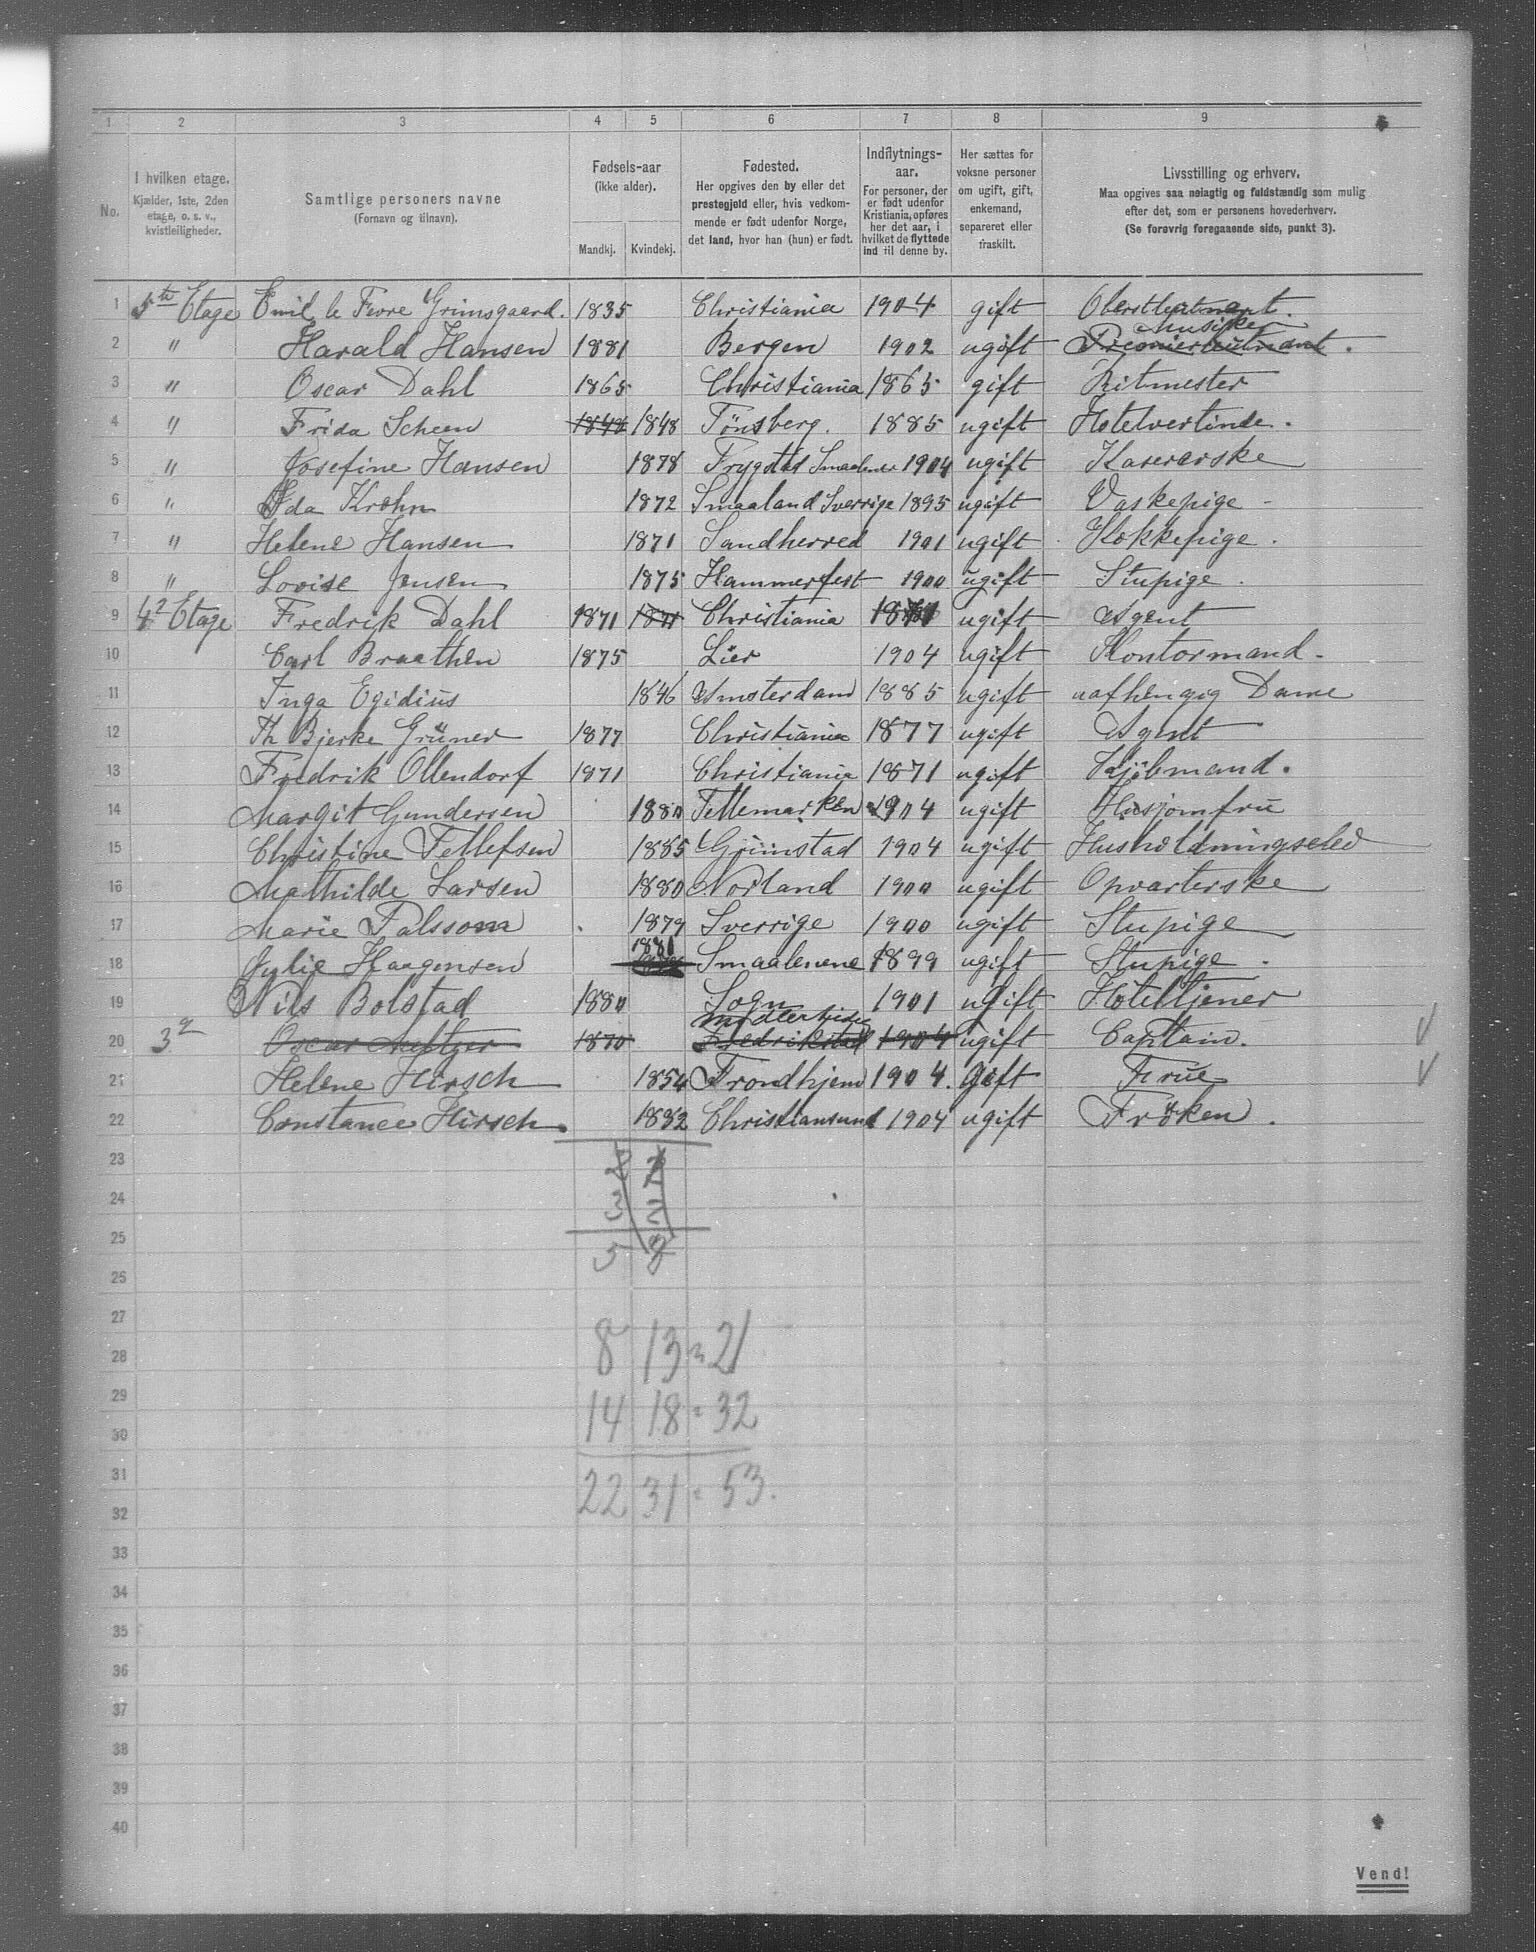 1 2 3 4 5 6 7 8 9
No. I hvilken etage. Kjælder, 1ste, 2den etage, o. s. v., kvistleiligheder. Samtlige personers navne (Fornavn og tilnavn). Fødsels-aar (ikke alder). Mandkj. Kvindekj. Fødested. Her opgives den by eller det prestegjeld eller, hvis vedkommende er født udenfor Norge, det land, hvor han (hun) er født. Indflytnings-aar. For personer, der er født udenfor Kristiania, opføres her det aar, i hvilket de flyttede ind til denne by. Her sættes for voksne personer om ugift, gift, enkemand, separeret eller fraskilt. Livsstilling og erhverv. Maa opgives saa nøiagtig og fuldstændig som mulig efter det, som er personens hovederhverv. (Se forøvrig foregaaende side, punkt 3).
1 5te Etage Emil le Fevre Grimsgaard. 1835 Christiania 1904 gift Oberstleutnant.
2 " Harald Hansen 1881 Bergen 1902 ugift Premierleutnant. Musiker
3 " Oscar Dahl 1865 Christiania 1865 gift Ritmester
4 " Frida Scheen 1848 1848 Tönsberg. 1885 ugift Hotelvertinde.
5 " Josefine Hansen 1878 Trygstad Smaalenene 1904 ugift Kasererske
6 " Ida Krohn 1872 Smaaland Sverrige 1895 ugift Vaskepige
7 " Helene Hansen 1871 Sandherred 1901 ugift Kokkepige.
8 " Lovise Jensen 1875 Hammerfest 1900 ugift Stupige.
9 4de Etage Fredrik Dahl 1871 1871 Christiania 1871 ugift Agent
10 Carl Braathen 1875 Lier 1904 ugift Kontormand.
11 Inga Egidius 1846 Amsterdam 1885 ugift uafhengig Dame
12 Th Bjerke Grüner 1877 Christiania 1877 ugift Agent
13 Fredrik Ollendorf 1871 Christiania 1871 ugift Kjöbmand.
14 Margit Gundersen 1880 Tellemarken 1904 ugift Husjomfru
15 Christine Tellefsen 1885 Grimstad 1904 ugift Husholdningselev
16 Mathilde Larsen 1880 Norland 1900 ugift Opvarterske
17 Marie Palsson 1879 Sverrige 1900 ugift Stupige
18 Julie Haagensen 1881 Smaalenene 1899 ugift Stupige.
19 Nils Bolstad 1880 Sogn 1901 ugift Hoteltjener
20 3de Oscar 1870 Fredrikstad 1904 ugift Captain.
21 Helene Hirsch 1854 Trondhjem 1904. Gift Frue
22 Constance Hirsch. 1882 Christiansund 1904 ugift Fröken.
23
24
25
5 8
26
27
8 13 = 21
28
29
14 18 = 32
30
31
22 31 = 53.
32
33
34
35
36
37
38
39
40
Vend!